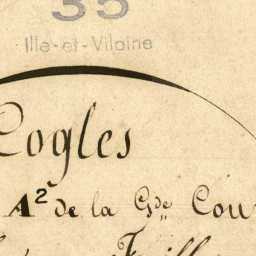 35
Ille-et-Vilaine
Cogles
A² de la Gde Cou